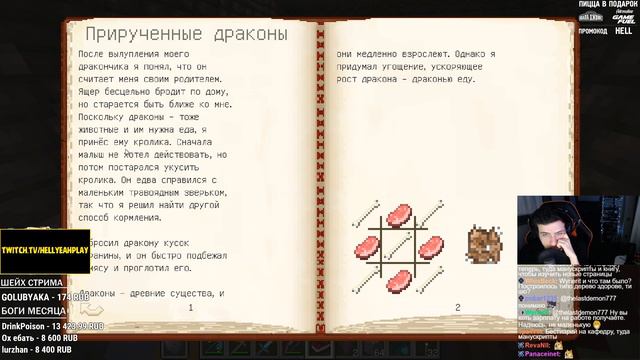 ПИЦЦА В ПОДАРОК
GAME FUEL
ПРОМОКОД HELL
Прирученные драконы
После вылупления моего
дракончика я понял, что он
считает меня своим родителем.
Ящер бесцельно бродит по дому,
но старается быть ближе ко мне.
Поскольку драконы - тоже
животные и им нужна еда, я
принёс ему кролика. Сначала
малыш не хотел действовать, но
потом постарался укусить
кролика. Он едва справился с
маленьким травоядным зверьком,
так что я решил найти другой
способ кормления.
бросил дракону кусок
и он быстро подбежал
мясу и проглотил его.
драконы - древние существа, и
1
они медленно взрослеют. Однако я
придумал угощение, ускоряющее
рост дракона - драконью еду.
2
TWITCH.TV/HELLYEAHPLAY
ШЕЙХ СТРИМА
GOLUBYAKA - 174 RUB
БОГИ МЕСЯЦА
DrinkPoison - 13 423.99 RUB
Ох ебать - 8 600 RUB
lurzhan - 8 400 RUB
теперь, туда манускрипты и книгу,
чтобы изучить новые страницы
Wyrierit и что там был?
Построилось типо дерево здоровое, ти
шо?
@thelastdemon777
понимаю
@thelastdemon777 Ну вы
хоть зарплату на работе получаете.
Надеюсь, не маленькую
Бестиарий на кафедру, туда
манускрипты
RevaNII:
Panaceinet: